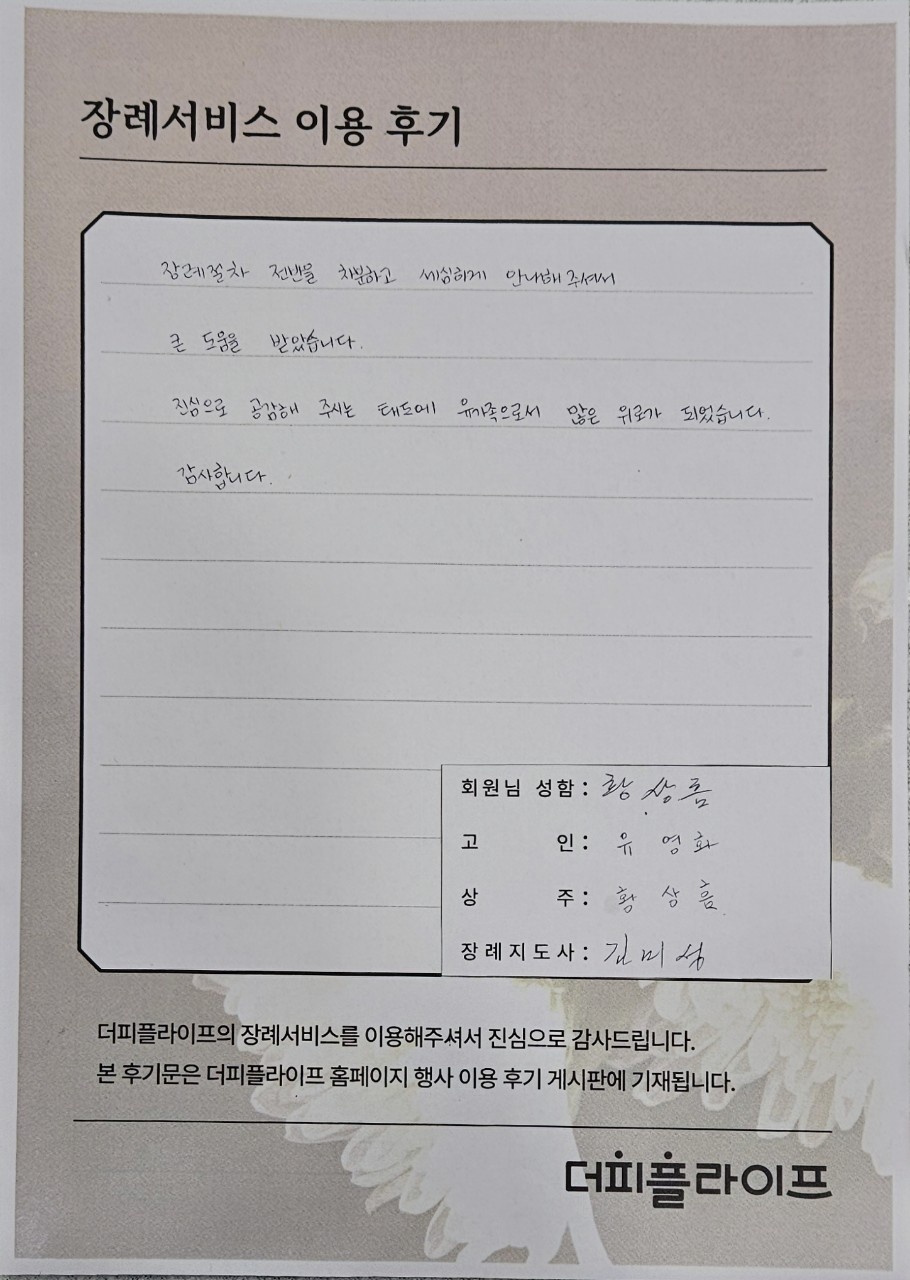 장례서비스 이용 후기
장례절차 전반을 차분하고 세심하게 안내해주셔서
큰 도움을 받았습니다.
진심으로 공감해 주시는 태도에 유가족으로서 많은 위로가 되었습니다.
감사합니다.
회원님 성함 : 황상흠
고 인 : 유영화
상 주 : 황상흠
장례지도사 : 김미성
더피플라이프의 장례서비스를 이용해주셔서 진심으로 감사드립니다.
본 후기문은 더피플라이프 홈페이지 행사 이용 후기 게시판에 기재됩니다.
더피플라이프